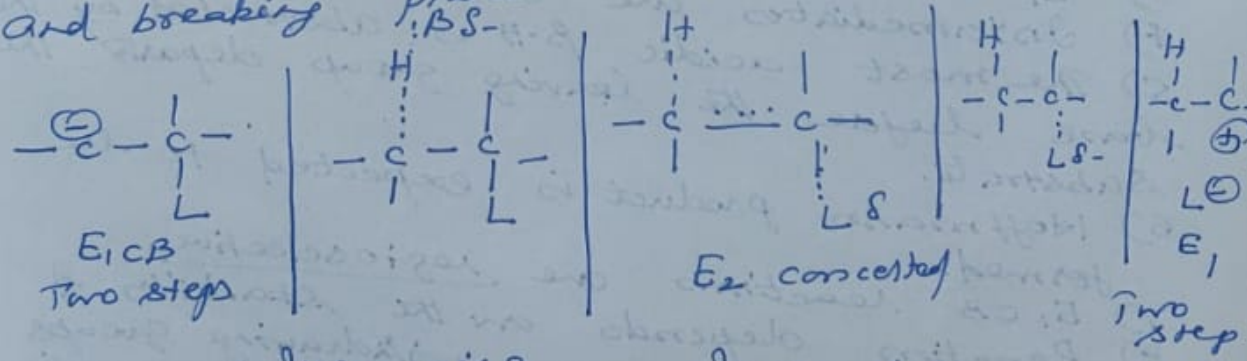 and breaking
:BS-
H
⊖
— C — C —
L
E₁CB
Two steps
H
— C — C —
L
H
— C ⋯ C —
L δ
E₂: concerted
H
— C — C —
L δ-
H
— C — C
⊕
L ⊖
E₁
Two
step